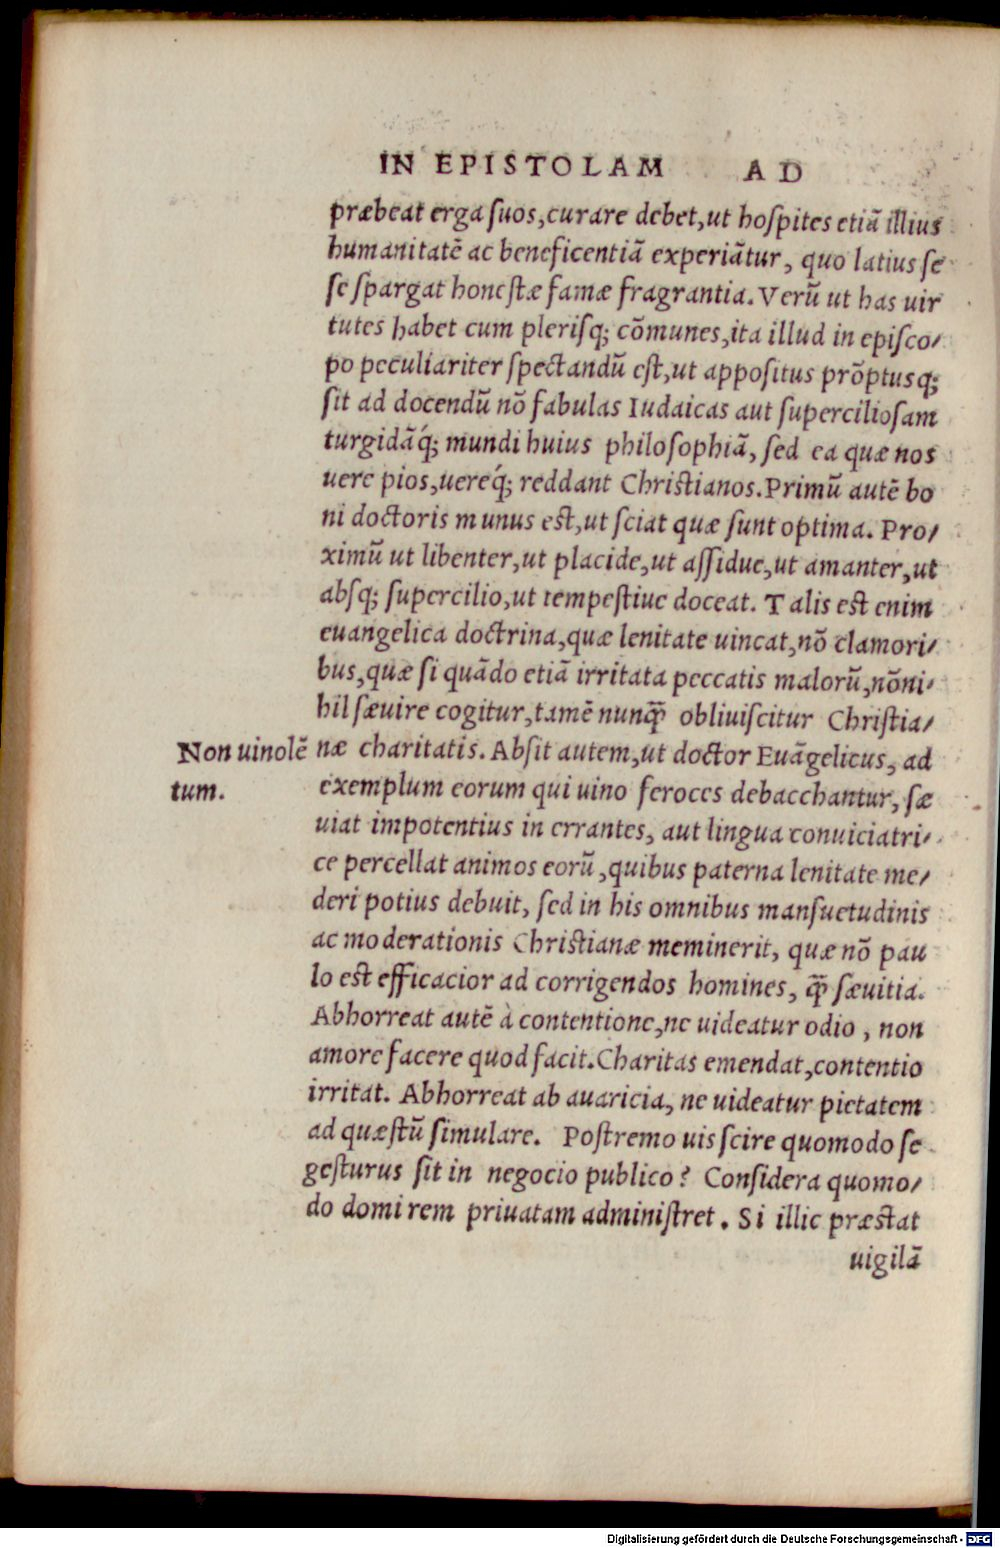 IN EPISTOLAM AD
præbeat erga ſuos,curare debet,ut hoſpites etiã illius
humanitatẽ ac beneficentiã experiãtur, quo latius ſe
ſe ſpargat honeſtæ famæ fragrantia. Verũ ut has uir
tutes habet cum plerisq; cõmunes,ita illud in epiſco/
po peculiariter ſpectandũ eſt,ut appoſitus prõptusq;
ſit ad docendũ nõ fabulas Iudaicas aut ſupercilioſam
turgidãq́; mundi huius philoſophiã, ſed ea quæ nos
uere pios,uereq́; reddant Chriſtianos.Primũ autẽ bo
ni doctoris munus eſt,ut ſciat quæ ſunt optima. Pro/
ximũ ut libenter,ut placide,ut aſſidue,ut amanter,ut
abſq; ſupercilio,ut tempeſtiue doceat. Talis eſt enim
euangelica doctrina,quæ lenitate uincat,nõ clamori/
bus,quæ ſi quãdo etiã irritata peccatis malorũ,nõni/
hil ſæuire cogitur,tamẽ nunꝗ̃ obliuiſcitur Chriſtia/
Non uinolẽ
tum.
næ charitatis. Abſit autem,ut doctor Euãgelicus, ad
exemplum eorum qui uino feroces debacchantur, ſæ
uiat impotentius in errantes, aut lingua conuiciatri/
ce percellat animos eorũ,quibus paterna lenitate me/
deri potius debuit, ſed in his omnibus manſuetudinis
ac moderationis Chriſtianæ meminerit, quæ nõ pau
lo eſt efficacior ad corrigendos homines, ꝗ̃ ſæuitia.
Abhorreat autẽ à contentione,ne uideatur odio, non
amore facere quod facit.Charitas emendat,contentio
irritat. Abhorreat ab auaricia, ne uideatur pietatem
ad quæſtũ ſimulare. Poſtremo uis ſcire quomodo ſe
geſturus ſit in negocio publico? Conſidera quomo/
do domi rem priuatam adminiſtret. Si illic præſtat
uigilã
Digitalisierung gefördert durch die Deutsche Forschungsgemeinschaft - DFG